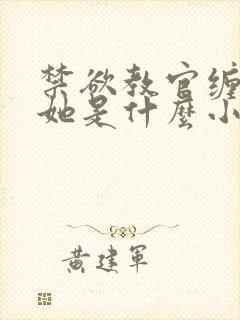 禁欲教官缠
她是什麼小
黄建軍